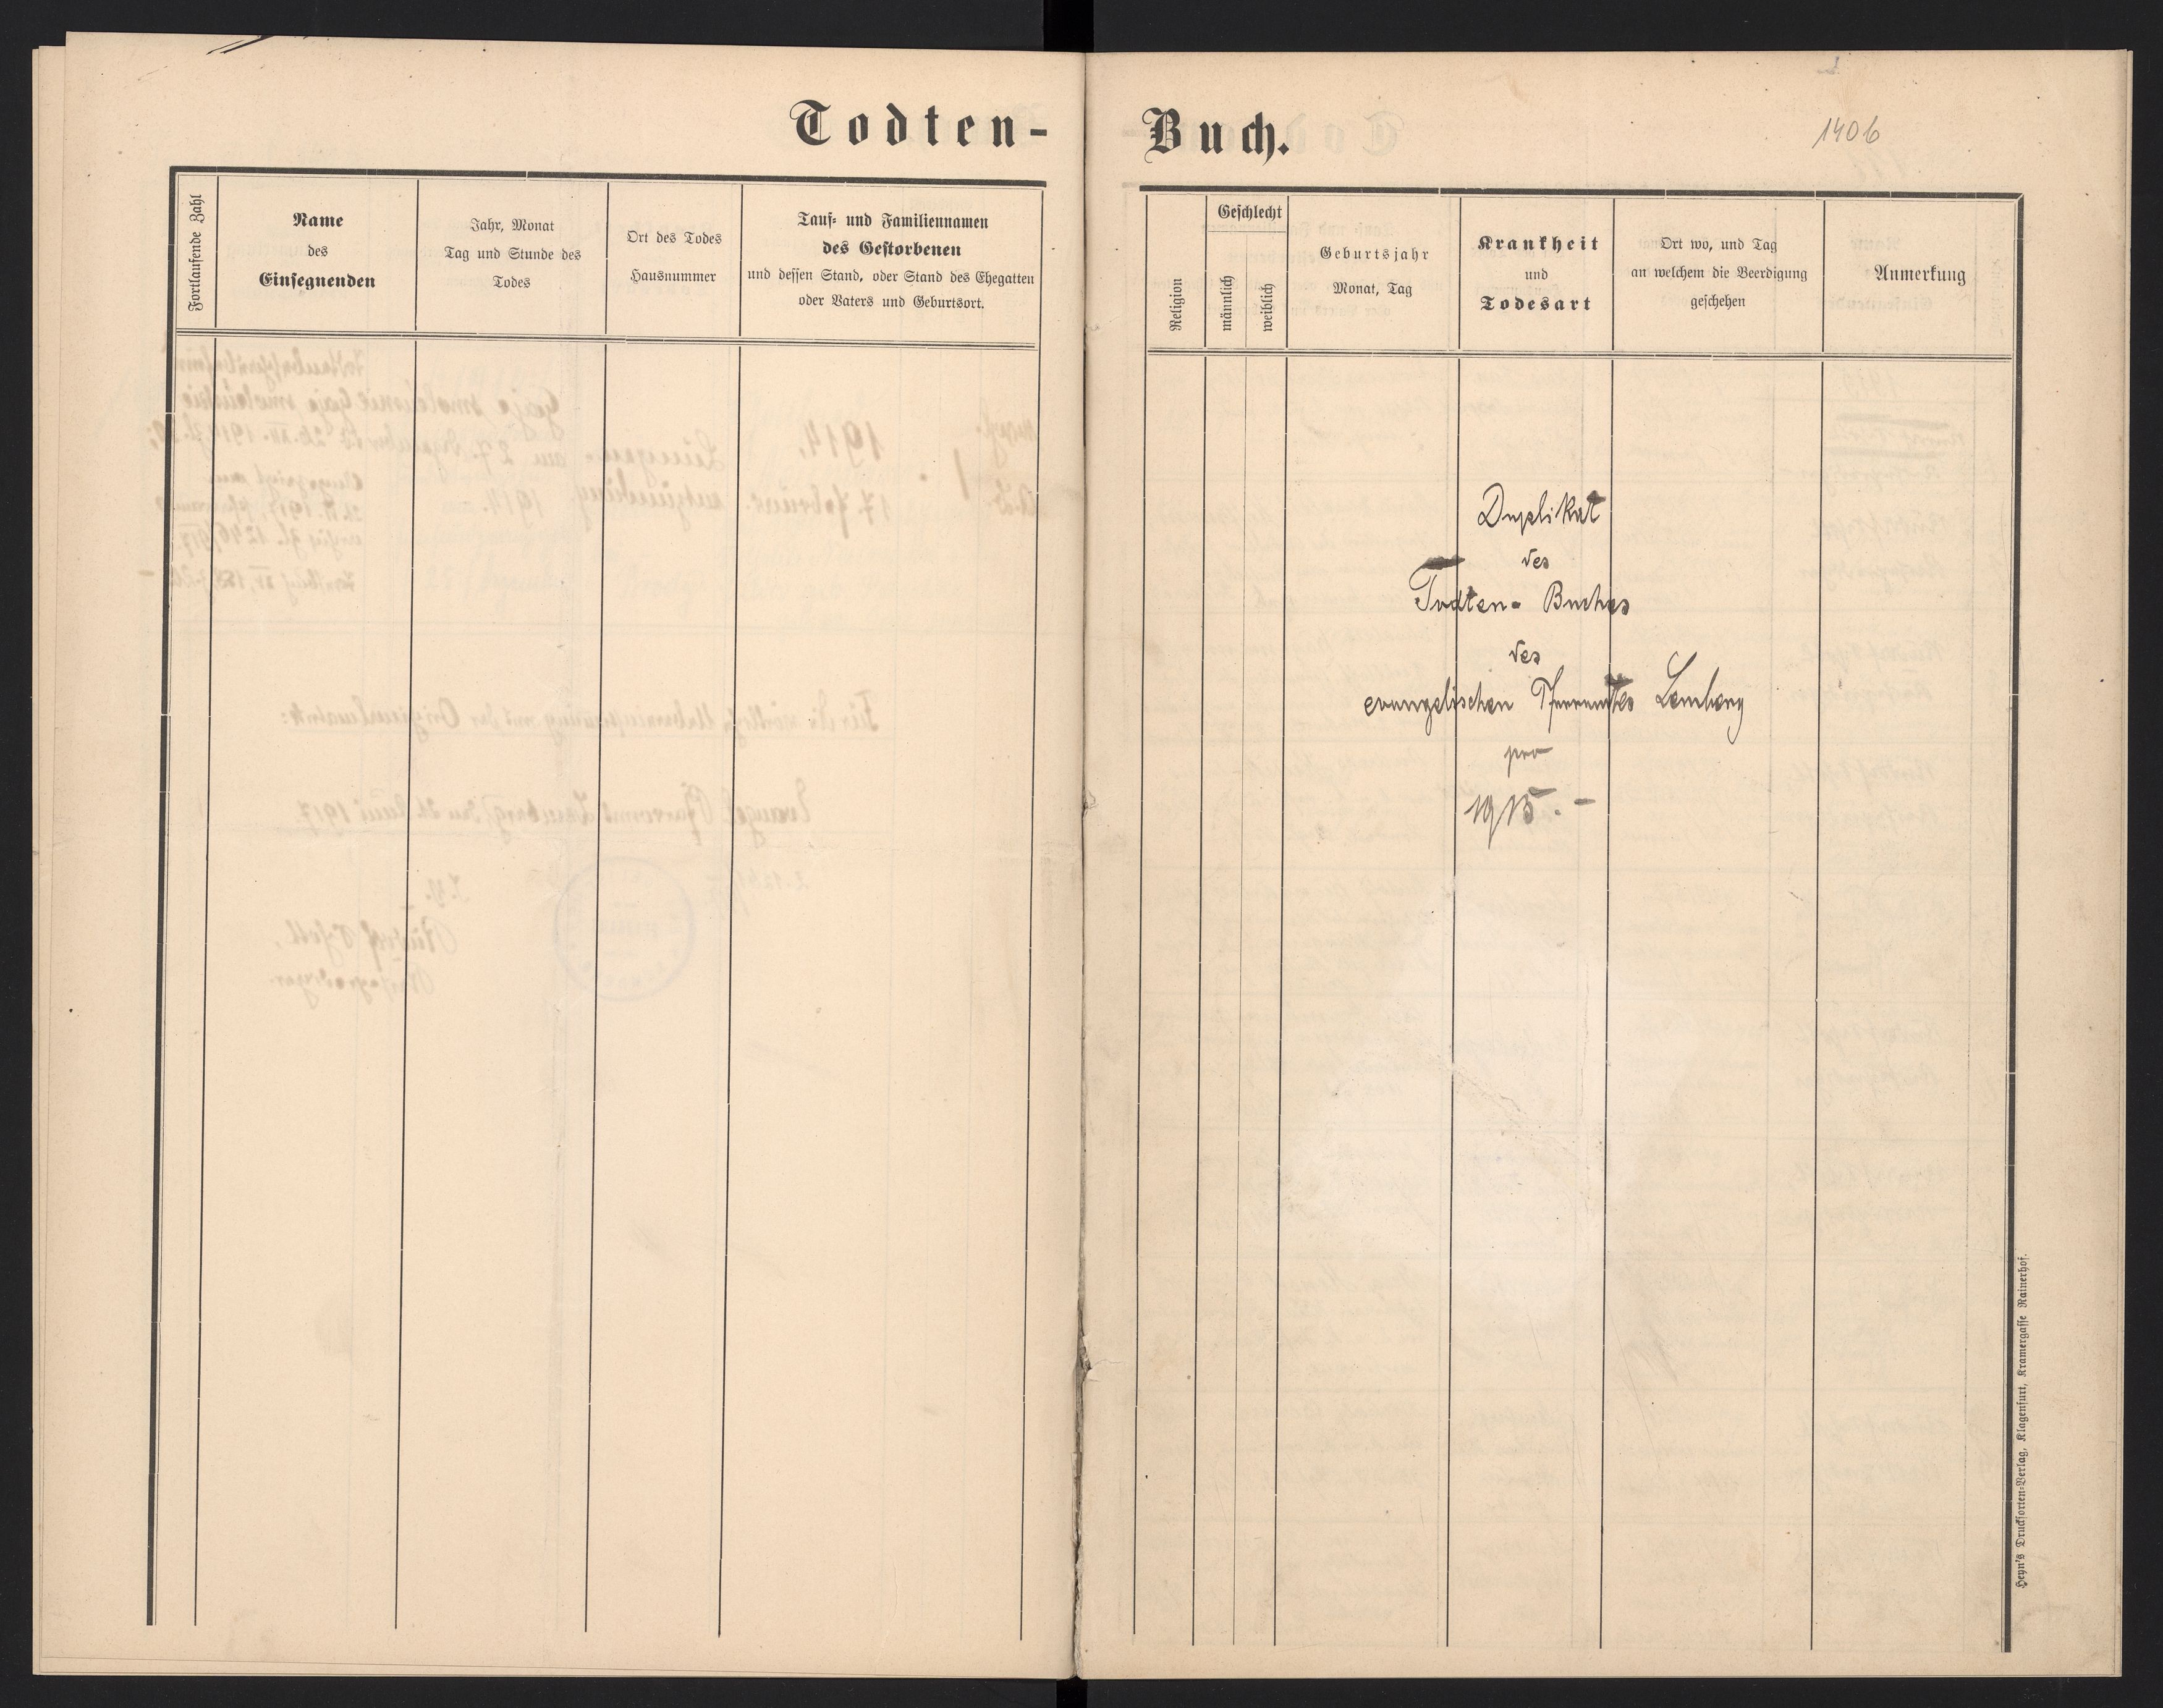 Todten-
Buch.
1406
Fortlaufende Zahl
Name
des
Einsegnenden
Jahr, Monat
Tag und Stunde des
Todes
Ort des Todes
Hausnummer
Tauf- und Familiennamen
des Gestorbenen
und dessen Stand, oder Stand des Ehegatten
oder Vaters und Geburtsort.
Religion
Geschlecht
männlich
weiblich
Geburtsjahr
Monat, Tag
Krankheit
und
Todesart
Ort wo, und Tag
an welchem die Beerdigung
geschehen
Anmerkung
Duplikat
des
Todten- Buches
des
evangelischen Pfarramtes Lemberg
pro
1915. -
Heyn's Drucksorten-Verlag, Klagenfurt, Kramergasse Rainerhof.